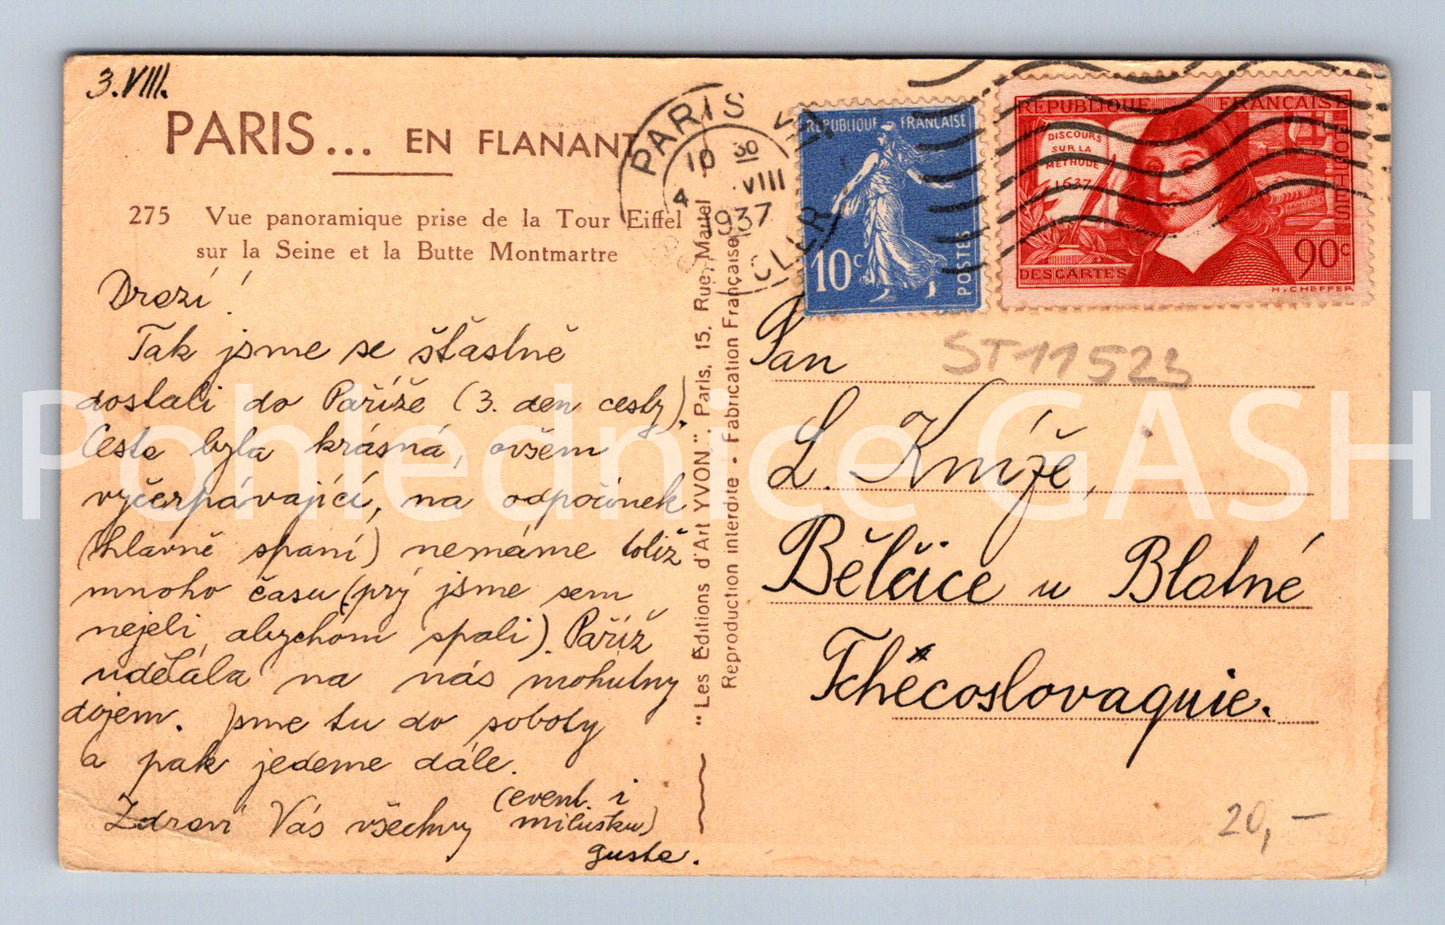 3.VIII.
PARIS... EN FLANANT
275 Vue panoramique prise de la Tour Eiffel
sur la Seine et la Butte Montmartre
Drazí!
Tak jsme se šťastně
dostali do Paříže (3. den cesty).
Cesta byla krásná, ovšem
vyčerpávající, na odpočinek
(hlavně spaní) nemáme totiž
mnoho času (prý jsme sem
nejeli, abychom spali). Paříž
udělala na nás mohutny
dojem. Jsme tu do soboty
a pak jedeme dále.
Zdraví Vás všechny (event. i
milusku)
Gusta.
"Les Editions d'Art YVON". Paris, 15, Rue Martel
Reproduction interdite - Fabrication Française
PARIS VI
10 30
4 VIII
1937
REPUBLIQUE FRANÇAISE
10c
POSTES
REPUBLIQUE FRANÇAISE
DISCOURS
SUR LA
MÉTHODE
1637
DESCARTES
90c
H. CHEFFER
ST11523
Pan
L. Kníže,
Bělčice u Blatné
Tchécoslovaquie.
20,-
Pohlednice GASH